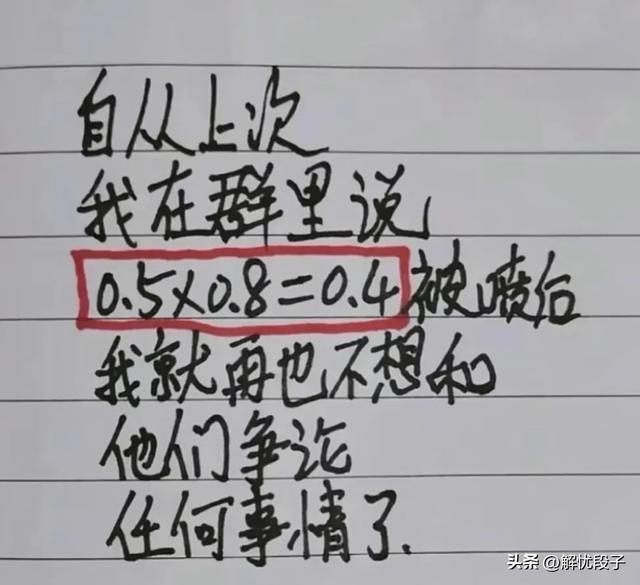 自从上次
我在群里说
0.5×0.8=0.4被喷后
我就再也不想和
他们争论
任何事情了.
头条 @解忧段子